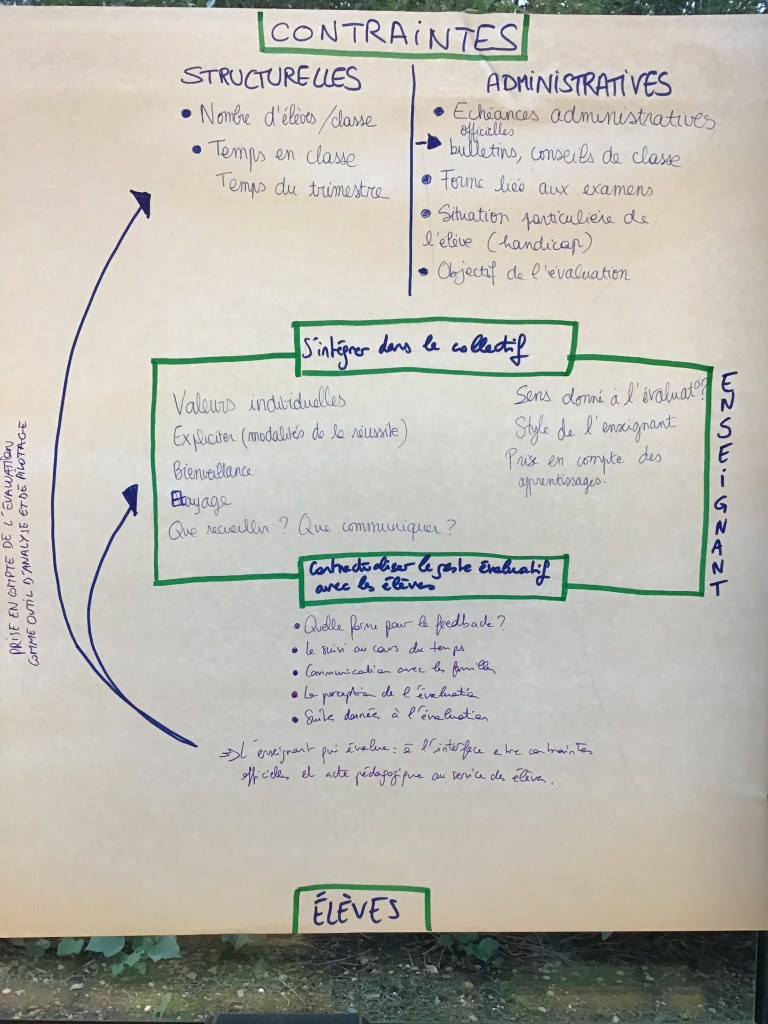 CONTRAiNTES
STRUCTURELLES
• Nombre d'élèves/classe
• Temps en classe
Temps du trimestre
ADMiNiSTRATiVES
• Echéances administratives
officielles
bulletins, conseils de classe
• Forme liée aux examens
• Situation particulière de
l'élève (handicap)
• Objectif de l'évaluation
S'intégrer dans le collectif
Valeurs individuelles
Expliciter (modalités de la réussite)
Bienveillance
Etayage
Que recueillir ? Que communiquer ?
Sens donné à l'évaluat°?
Style de l'enseignant
Prise en compte des
apprentissages.
ENSEiGNANT
Contractualiser le geste évaluatif
avec les élèves
• Quelle forme pour le feedback ?
• Le suivi au cours du temps
• Communication avec les familles
• La perception de l'évaluation
• Suites données à l'évaluation
=> L'enseignant qui évalue : à l'interface entre contraintes
officielles et acte pédagogique au service des élèves.
PRISE EN COMPTE DE L'ÉVALUATION
COMME OUTIL D'ANALYSE ET DE PILOTAGE
ÉLÈVES